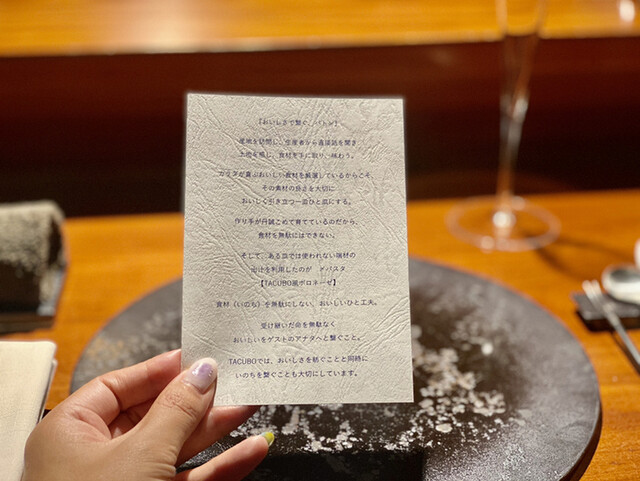 『おいしさで繋ぐ、バトン』
産地を訪問し、生産者から直接話を聞き
土地を感じ、食材を手に取り、味わう。
カラダが喜ぶおいしい食材を厳選しているからこそ、
その食材の良さを大切に
おいしく引き立つ一皿ひと皿にする。
作り手が丹誠こめて育てているのだから、
食材を無駄にはできない。
そして、ある皿では使われない端材の
出汁を利用したのが 〆パスタ
【TACUBO風ボロネーゼ】
食材（いのち）を無駄にしない、おいしいひと工夫。
受け継いだ命を無駄なく
おいしいをゲストのアナタへと繋ぐこと。
TACUBOでは、おいしさを紡ぐことと同時に
いのちを繋ぐことも大切にしています。